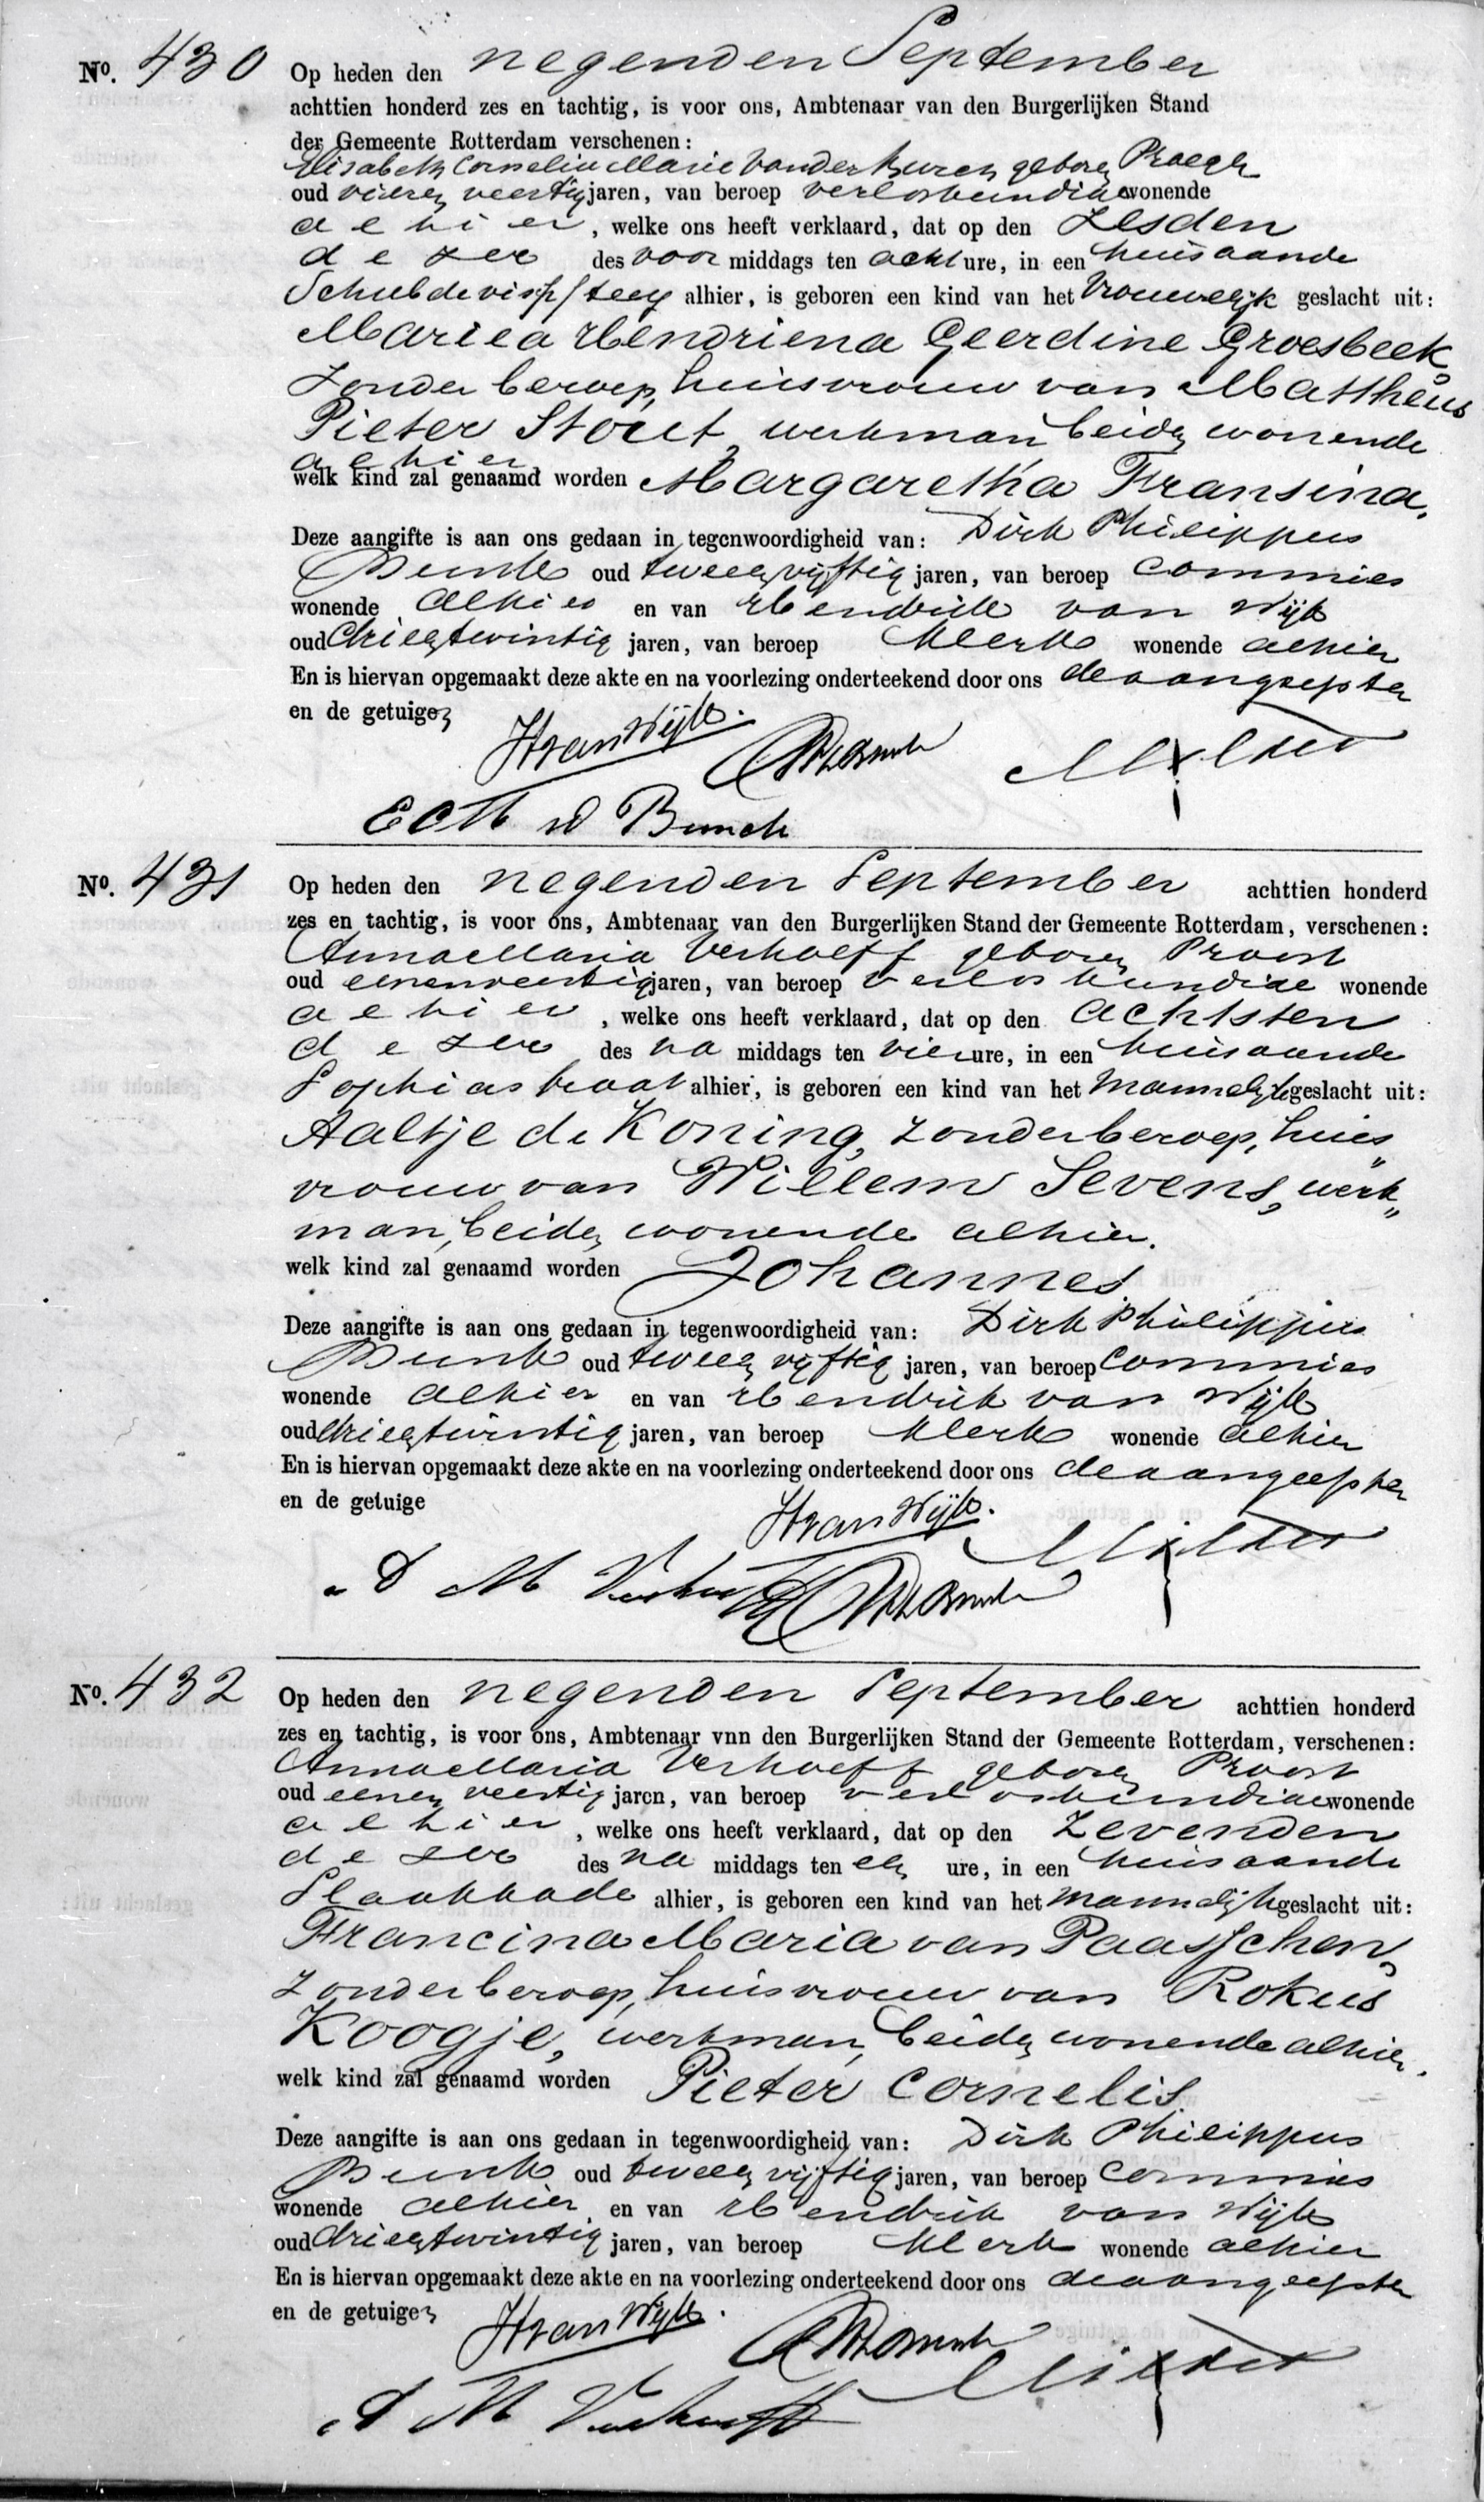 No. 430 Op heden den negenden September
achttien honderd zes en tachtig, is voor ons, Ambtenaar van den Burgerlijken Stand
der Gemeente Rotterdam verschenen:
Elisabeth Cornelia Marie van der geboren
oud vieren veertig jaren, van beroep verloskundige wonende
alhier, welke ons heeft verklaard, dat op den Zesden
dezer des voor middags ten acht ure, in een huis aan de
alhier, is geboren een kind van het Vrouwelijk geslacht uit:
Maria Hendriena Geerdine Groesbeek,
zonder beroep, huisvrouw van Mattheus
Pieter Stout, werkman beiden wonende
alhier
welk kind zal genaamd worden Margaretha Fransina.
Deze aangifte is aan ons gedaan in tegenwoordigheid van: Dirk Philippus
Bunk oud tweeen vijftig jaren, van beroep Commies
wonende alhier en van Hendrik van Wijk
oud drieentwintig jaren, van beroep klerk wonende alhier
En is hiervan opgemaakt deze akte en na voorlezing onderteekend door ons de aangeefster
en de getuigen
H van Wijk.
No. 431 Op heden den negenden September achttien honderd
zes en tachtig, is voor ons, Ambtenaar van den Burgerlijken Stand der Gemeente Rotterdam, verschenen:
Anna Maria Verhoeff geboren Proost
oud eenenveertig jaren, van beroep verloskundige wonende
alhier, welke ons heeft verklaard, dat op den achtsten
dezer des na middags ten vier ure, in een huis aan de
Sophiastraat alhier, is geboren een kind van het Mannelijk geslacht uit:
Aaltje de Koning, zonder beroep, huis
vrouw van Willem Sevens, werk„
man, beiden wonende alhier.
welk kind zal genaamd worden Johannes
Deze aangifte is aan ons gedaan in tegenwoordigheid van: Dirk Philippus
Bunk oud tweeen vijftig jaren, van beroep Commies
wonende alhier en van Hendrik van Wijk
oud drieentwintig jaren, van beroep klerk wonende alhier
En is hiervan opgemaakt deze akte en na voorlezing onderteekend door ons de aangeefster
en de getuige
H van Wijk.
M Verhoeff
No. 432 Op heden den negenden September achttien honderd
zes en tachtig, is voor ons, Ambtenaar vnn den Burgerlijken Stand der Gemeente Rotterdam, verschenen:
Anna Maria Verhoeff geboren Proost
oud eenen veertig jaren, van beroep verloskundige wonende
alhier, welke ons heeft verklaard, dat op den Zevenden
dezer des na middags ten een ure, in een huis aan de
Slaakkade alhier, is geboren een kind van het Mannelijk geslacht uit:
Francina Maria van Paasschen,
zonder beroep, huisvrouw van Rokus
Koogje, werkman, beiden wonende alhier.
welk kind zal genaamd worden Pieter Cornelis
Deze aangifte is aan ons gedaan in tegenwoordigheid van: Dirk Philippus
Bunk oud tweeen vijftig jaren, van beroep Commies
wonende alhier en van Hendrik van Wijk
oud drieentwintig jaren, van beroep klerk wonende alhier
En is hiervan opgemaakt deze akte en na voorlezing onderteekend door ons de aangeefster
en de getuigen
H van Wijk.
M Verhoeff